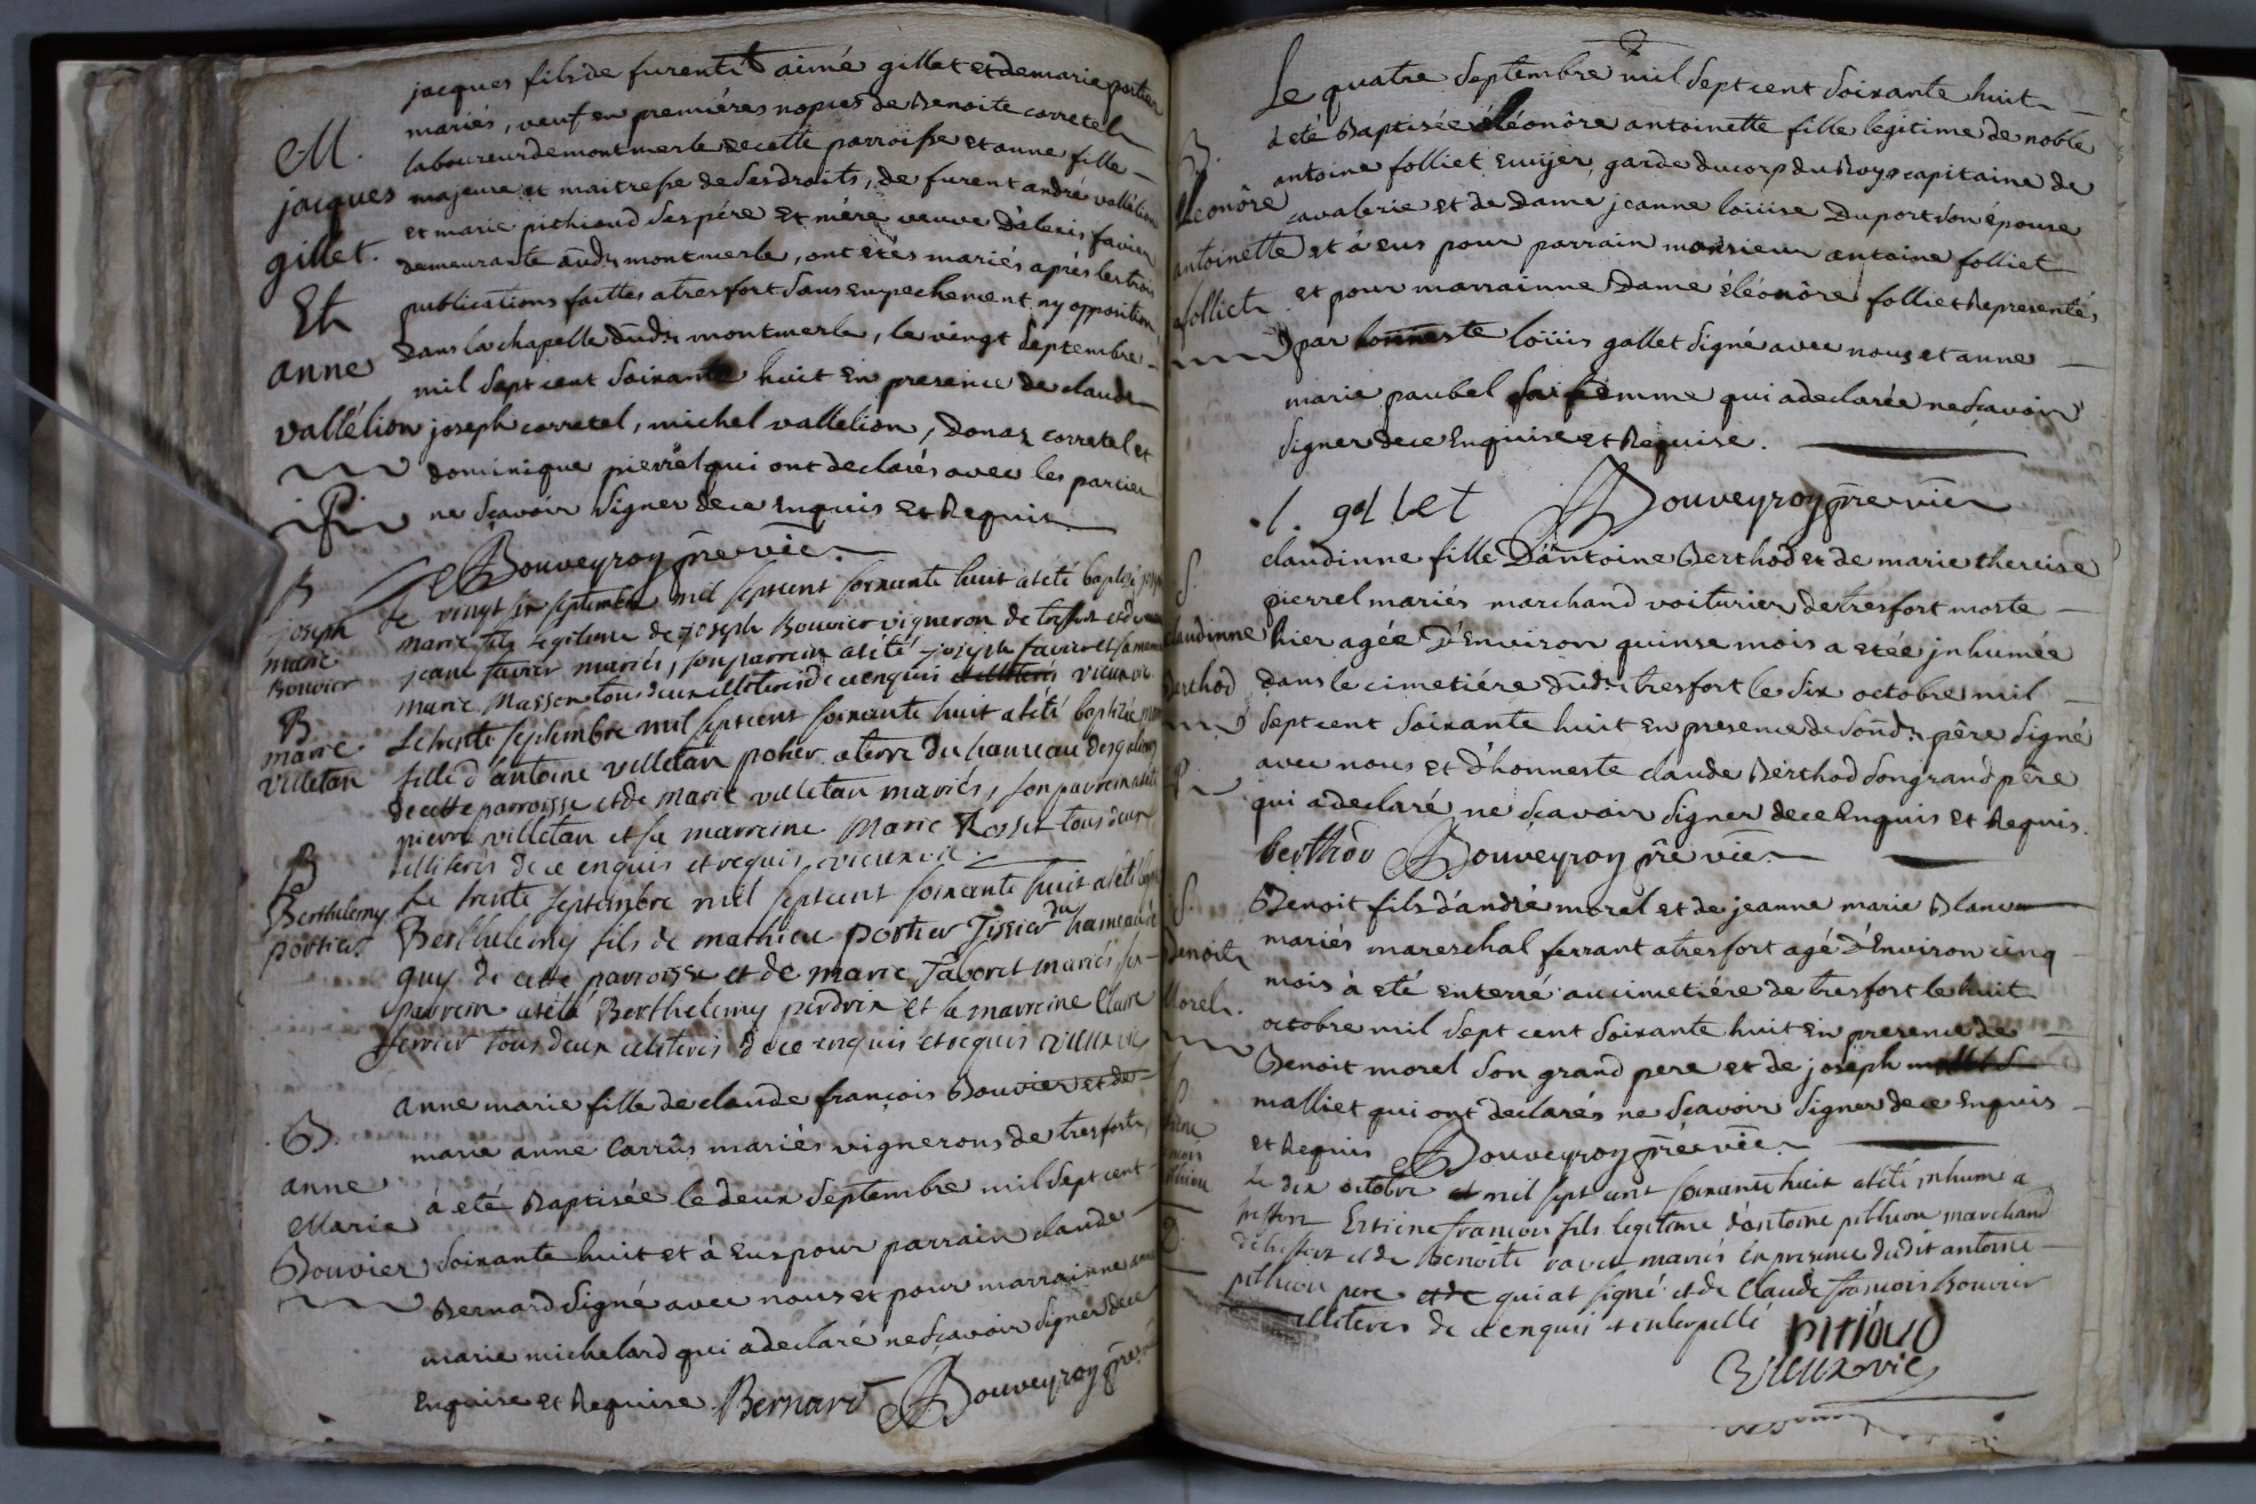 jacques fils de furent aimé gillet et de marie portier
mariés, veuf en premiéres nopces de Benoite corretel
M.
laboureur de montmerle de cette parroisse et anne fille
jacques
majeure et maitresse de ses droits, de furent andré vallélion
gillet.
et marie pithioud ses pére et mére veuve d'alexis favier
demeurante audt montmerle, ont etés mariés aprés les trois
Et
publications faittes a tresfort sans empechement ny opposition
anne
dans la chapelle dudt montmerle, le vingt septembre
mil sept cent soixante huit en presence de claude
vallélion
joseph corretel, michel vallélion, donaz corretel et
dominique pierrel qui ont declarés avec les parties
.P.
ne sçavoir signer de ce enquis et Requis
Bouveyroy pre vic.
B
joseph
marie
Bouvier
le vingt six septembre mil sept cent soixante huit at été baptisé joseph
marie fils legitime de joseph Bouvier vigneron de tresfort et de
jeane favier mariés, son parrein at été joseph favier et sa marreine
marie Masson tous deux illiterés de ce enquis et illiterés vieux vic
B
marie
villetan
Le trente septembre mil sept cent soixante huit at été baptizée marie
fille d'antoine villetan potier a terre du hameau des
de cette parroisse et de marie villetan mariés, son parrein at été
pierre villetan et sa marreine Marie Rosset tous deux
illiterés de ce enquis et requis vieux vic.
B
Berthelemy
portier
Le trente septembre mil sept cent soixante huit at été baptisé
Berthelemy fils de mathieu portier Tissier du hameau de
guy de cette parroisse et de marie favoret mariés son
parrein at été Berthelemy perdrix et la marreine Claire
ferrier tous deux illiterés de ce enquis et requis vieux vic
B.
anne
Marie
Bouvier
anne marie fille de claude françois Bouvier et de
marie anne Carrûs mariés vignerons de tresfort,
à eté Baptisée le deux septembre mil sept cent
soixante huit et à eus pour parrain claude
Bernard signé avec nous et pour marrainne anne
marie michelard qui a declaré ne sçavoir signer de ce
enquise et Requise. Bernard Bouveyroy pre vic
Le quatre septembre mil sept cent soixante huit
B.
Eleonôre
antoinette
folliet
à eté Baptisée éléonôre antoinette fille legitime de noble
antoine folliet ecuyer, garde du corp du Roy capitaine de
cavalerie et de dame jeanne loüise Duport son épouse
et à eus pour parrain monsieur antoine folliet
et pour marrainne Dame éléonôre folliet Representés
par honneste loüis gallet signé avec nous et anne
marie paubel sa femme qui a declarée ne sçavoir
signer de ce enquise et Requise.
l. gallet Bouveyroy pre vic
S.
claudinne
Berthod
claudinne fille D'antoine Berthod et de marie thereise
pierrel mariés marchand voiturier de tresfort morte
hier agée d'Environ quinse mois a etée jnhumée
dans le cimetiére dudt tresfort le six octobre mil
sept cent soixante huit en presence de sondt pére signé
avec nous et d'honneste claude Berthod son grand pére
qui a declaré ne sçavoir signer de ce enquis et Requis.
berthod Bouveyroy pre vic.
S.
Benoit
Morel.
Benoit fils d'andré morel et de jeanne marie Blanc
mariés mareschal ferrant a tresfort agé d'Environ cinq
mois à eté enterré au cimetiére de tresfort le huit
octobre mil sept cent soixante huit en presence de
Benoit morel son grand pere et de joseph
malliet qui ont declarés ne sçavoir signer de ce enquis
et Requis Bouveyroy pre vic.
Le dix octobre mil sept cent soixante huit at été jnhumé a
tresfort Estiene francois fils legitime d'antoine pithiou marchand
de tresfort et de Benoite ravet mariés en presence dudit antoine
pithiou pere et de qui at signé et de Claude francois Bouvier
illiterés de ce enquis et interpellé
pitioud
Vieux vic